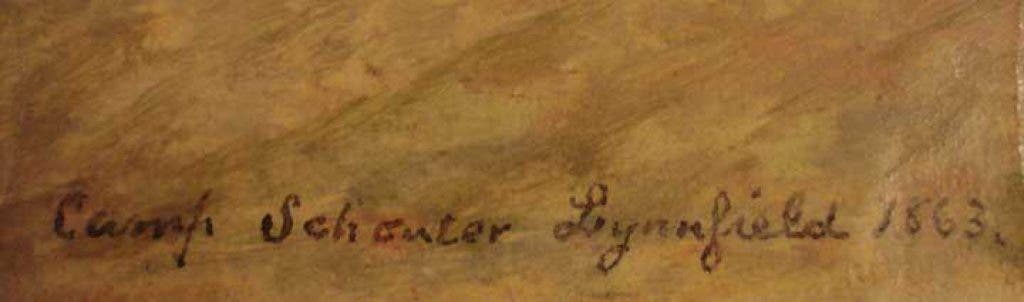 Camp Schouler Lynnfield 1863.